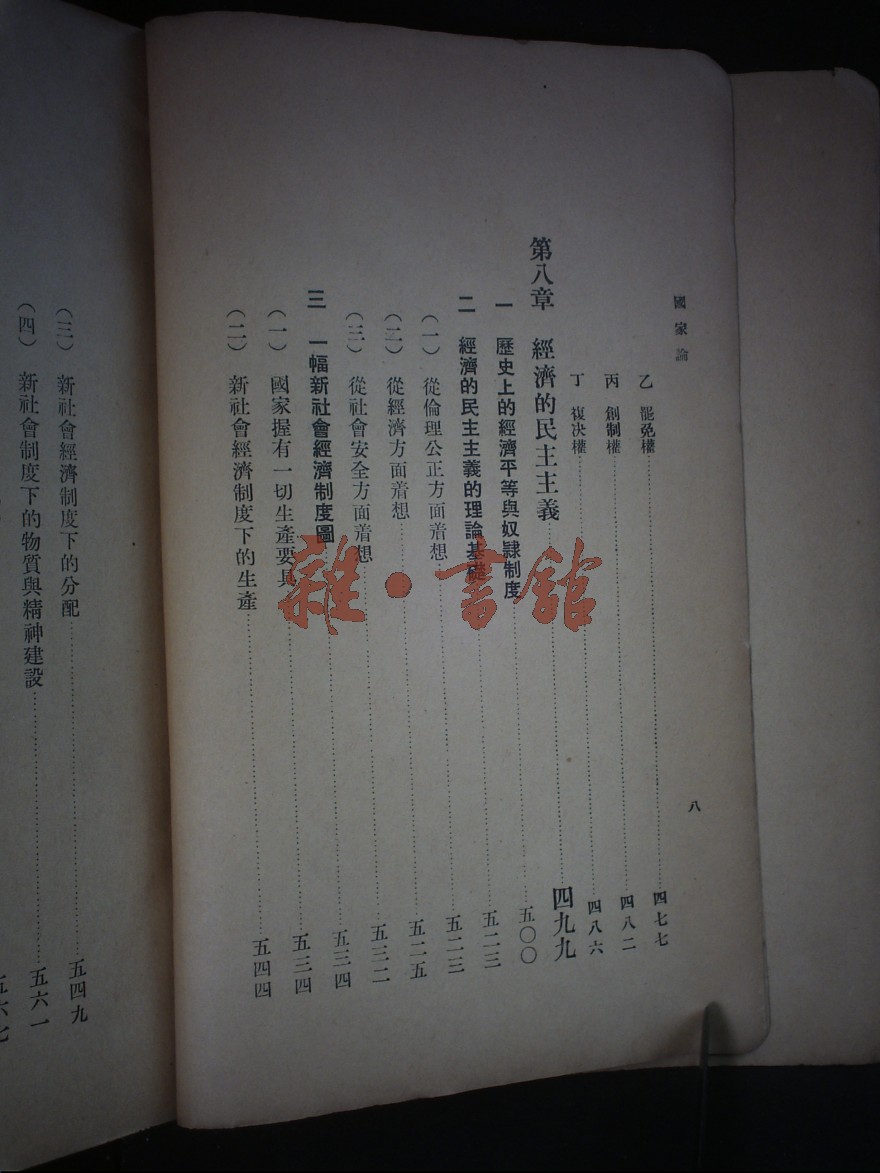 國家論
八
乙 罷免權 四七七
丙 創制權 四八二
丁 複決權 四八六
第八章 經濟的民主主義 四九九
一 歷史上的經濟平等與奴隸制度 五〇〇
二 經濟的民主主義的理論基礎 五二三
(一) 從倫理公正方面着想 五二三
(二) 從經濟方面着想 五二五
(三) 從社會安全方面着想 五三二
三 一幅新社會經濟制度圖 五三四
(一) 國家握有一切生產要具 五三四
(二) 新社會經濟制度下的生產 五四四
(三) 新社會經濟制度下的分配 五四九
(四) 新社會制度下的物質與精神建設 五六一
雜·書館